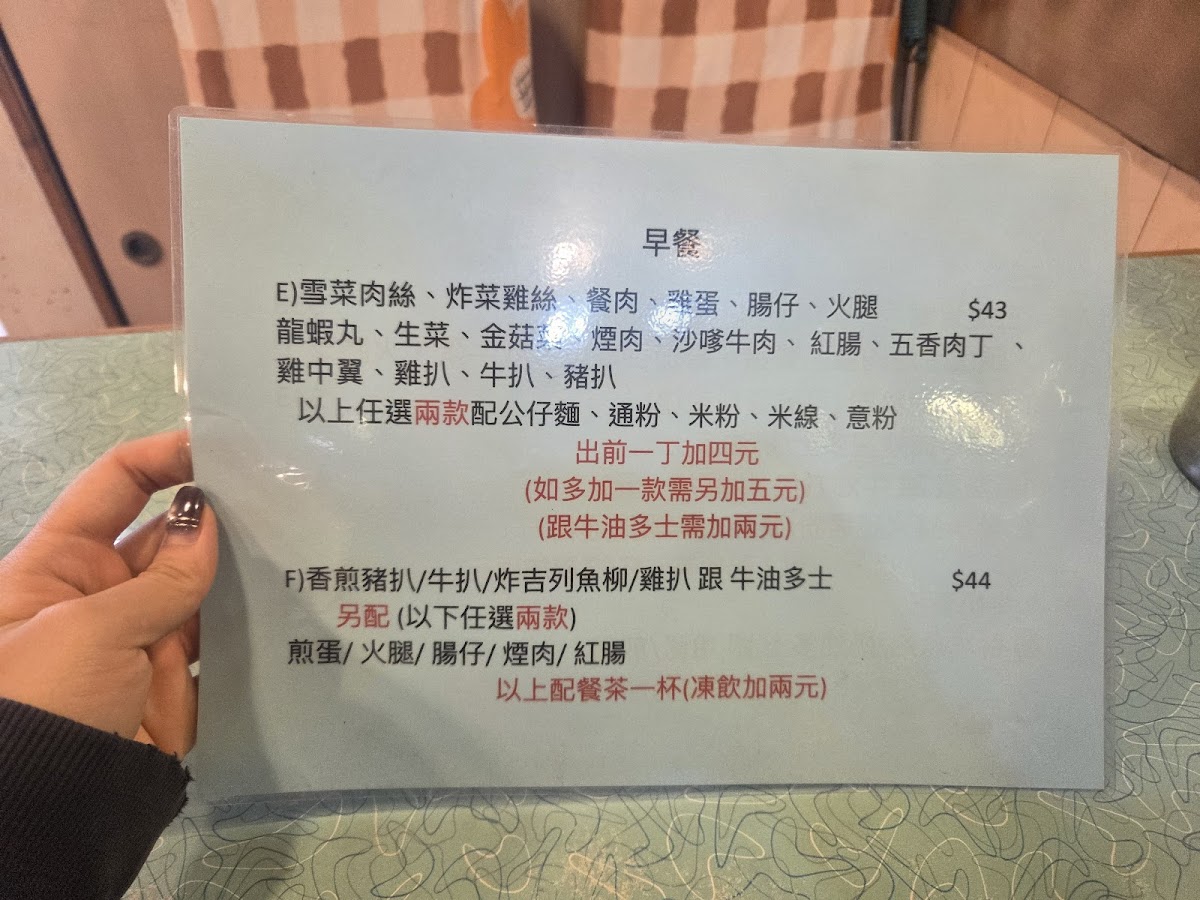 早餐
E)雪菜肉絲、炸菜雞絲、餐肉、雞蛋、腸仔、火腿 $43
龍蝦丸、生菜、金菇菜、煙肉、沙嗲牛肉、紅腸、五香肉丁、
雞中翼、雞扒、牛扒、豬扒
以上任選兩款配公仔麵、通粉、米粉、米線、意粉
出前一丁加四元
(如多加一款需另加五元)
(跟牛油多士需加兩元)
F)香煎豬扒/牛扒/炸吉列魚柳/雞扒 跟 牛油多士 $44
另配 (以下任選兩款)
煎蛋/ 火腿/ 腸仔/ 煙肉/ 紅腸
以上配餐茶一杯(凍飲加兩元)